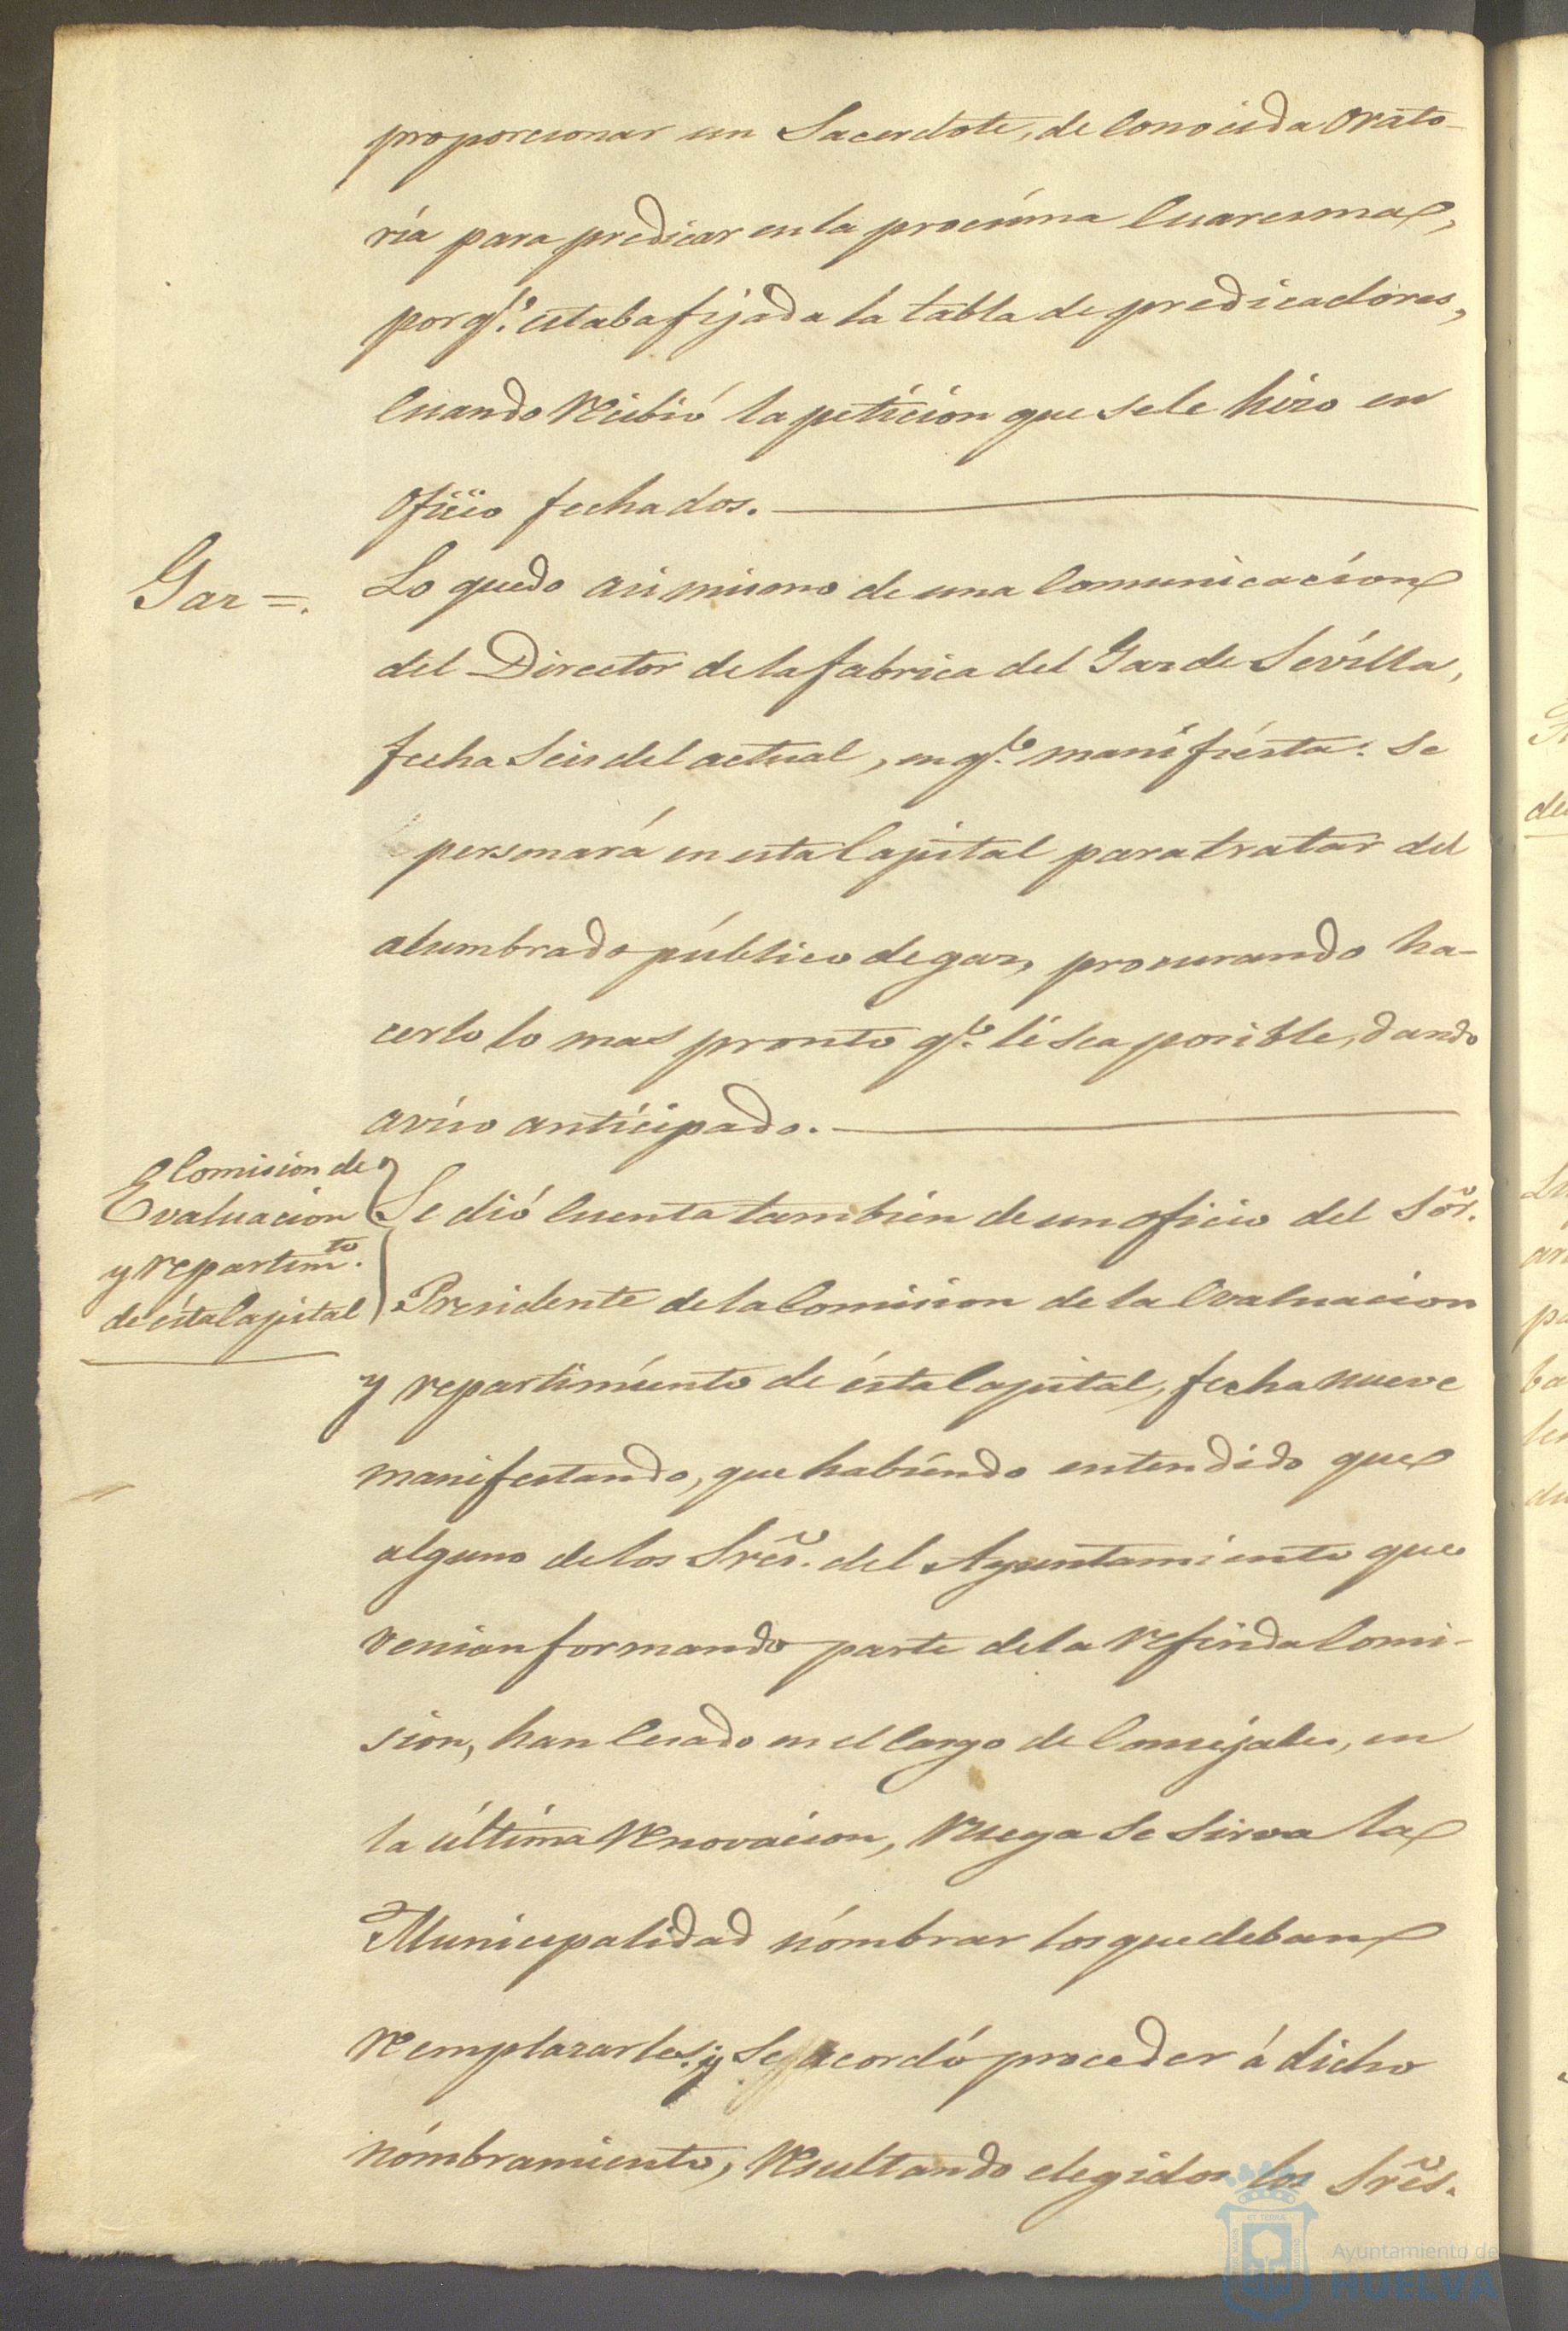 proporcionar un Sacerdote, de conocida Orato-
ría para predicar en la procsíma Cuaresma,
porq.e estaba fijada la tabla de predicadores,
cuando recibió la petícion que se le hizo en
oficio fecha dos.
Gaz=.
Lo quedo asi mismo de una comunicacíon
del Director de la fabrica del Gaz de Sevílla,
fecha seis del actual, en q.e manifíesta: se
personará en esta Capital para tratar del
alumbrado público de gaz, procurando ha-
cerlo lo mas pronto q.e lé sea posible, dando
avíso antícipado.
Comision de
Evaluacion
y repartim.to
de ésta Capital
Se dió cuenta tambien de un oficio del Sor.
Presidente de la Comision de la Evaluacion
y repartimíento de ésta Capital, fecha nueve
manifestando, que habíendo entendido que
alguno de los Sres. del Ayuntamiento que
venian formando parte de la referida Comi-
sion, han cesado en el cargo de Concejales, en
la últíma renovacion, ruega se sirva la
Municipalidad nómbrar los que deban
remplazarles; y se acordó proceder á dicho
nómbramiento, resultando elegidos los Sres.
Ayuntamiento de
HUELVA